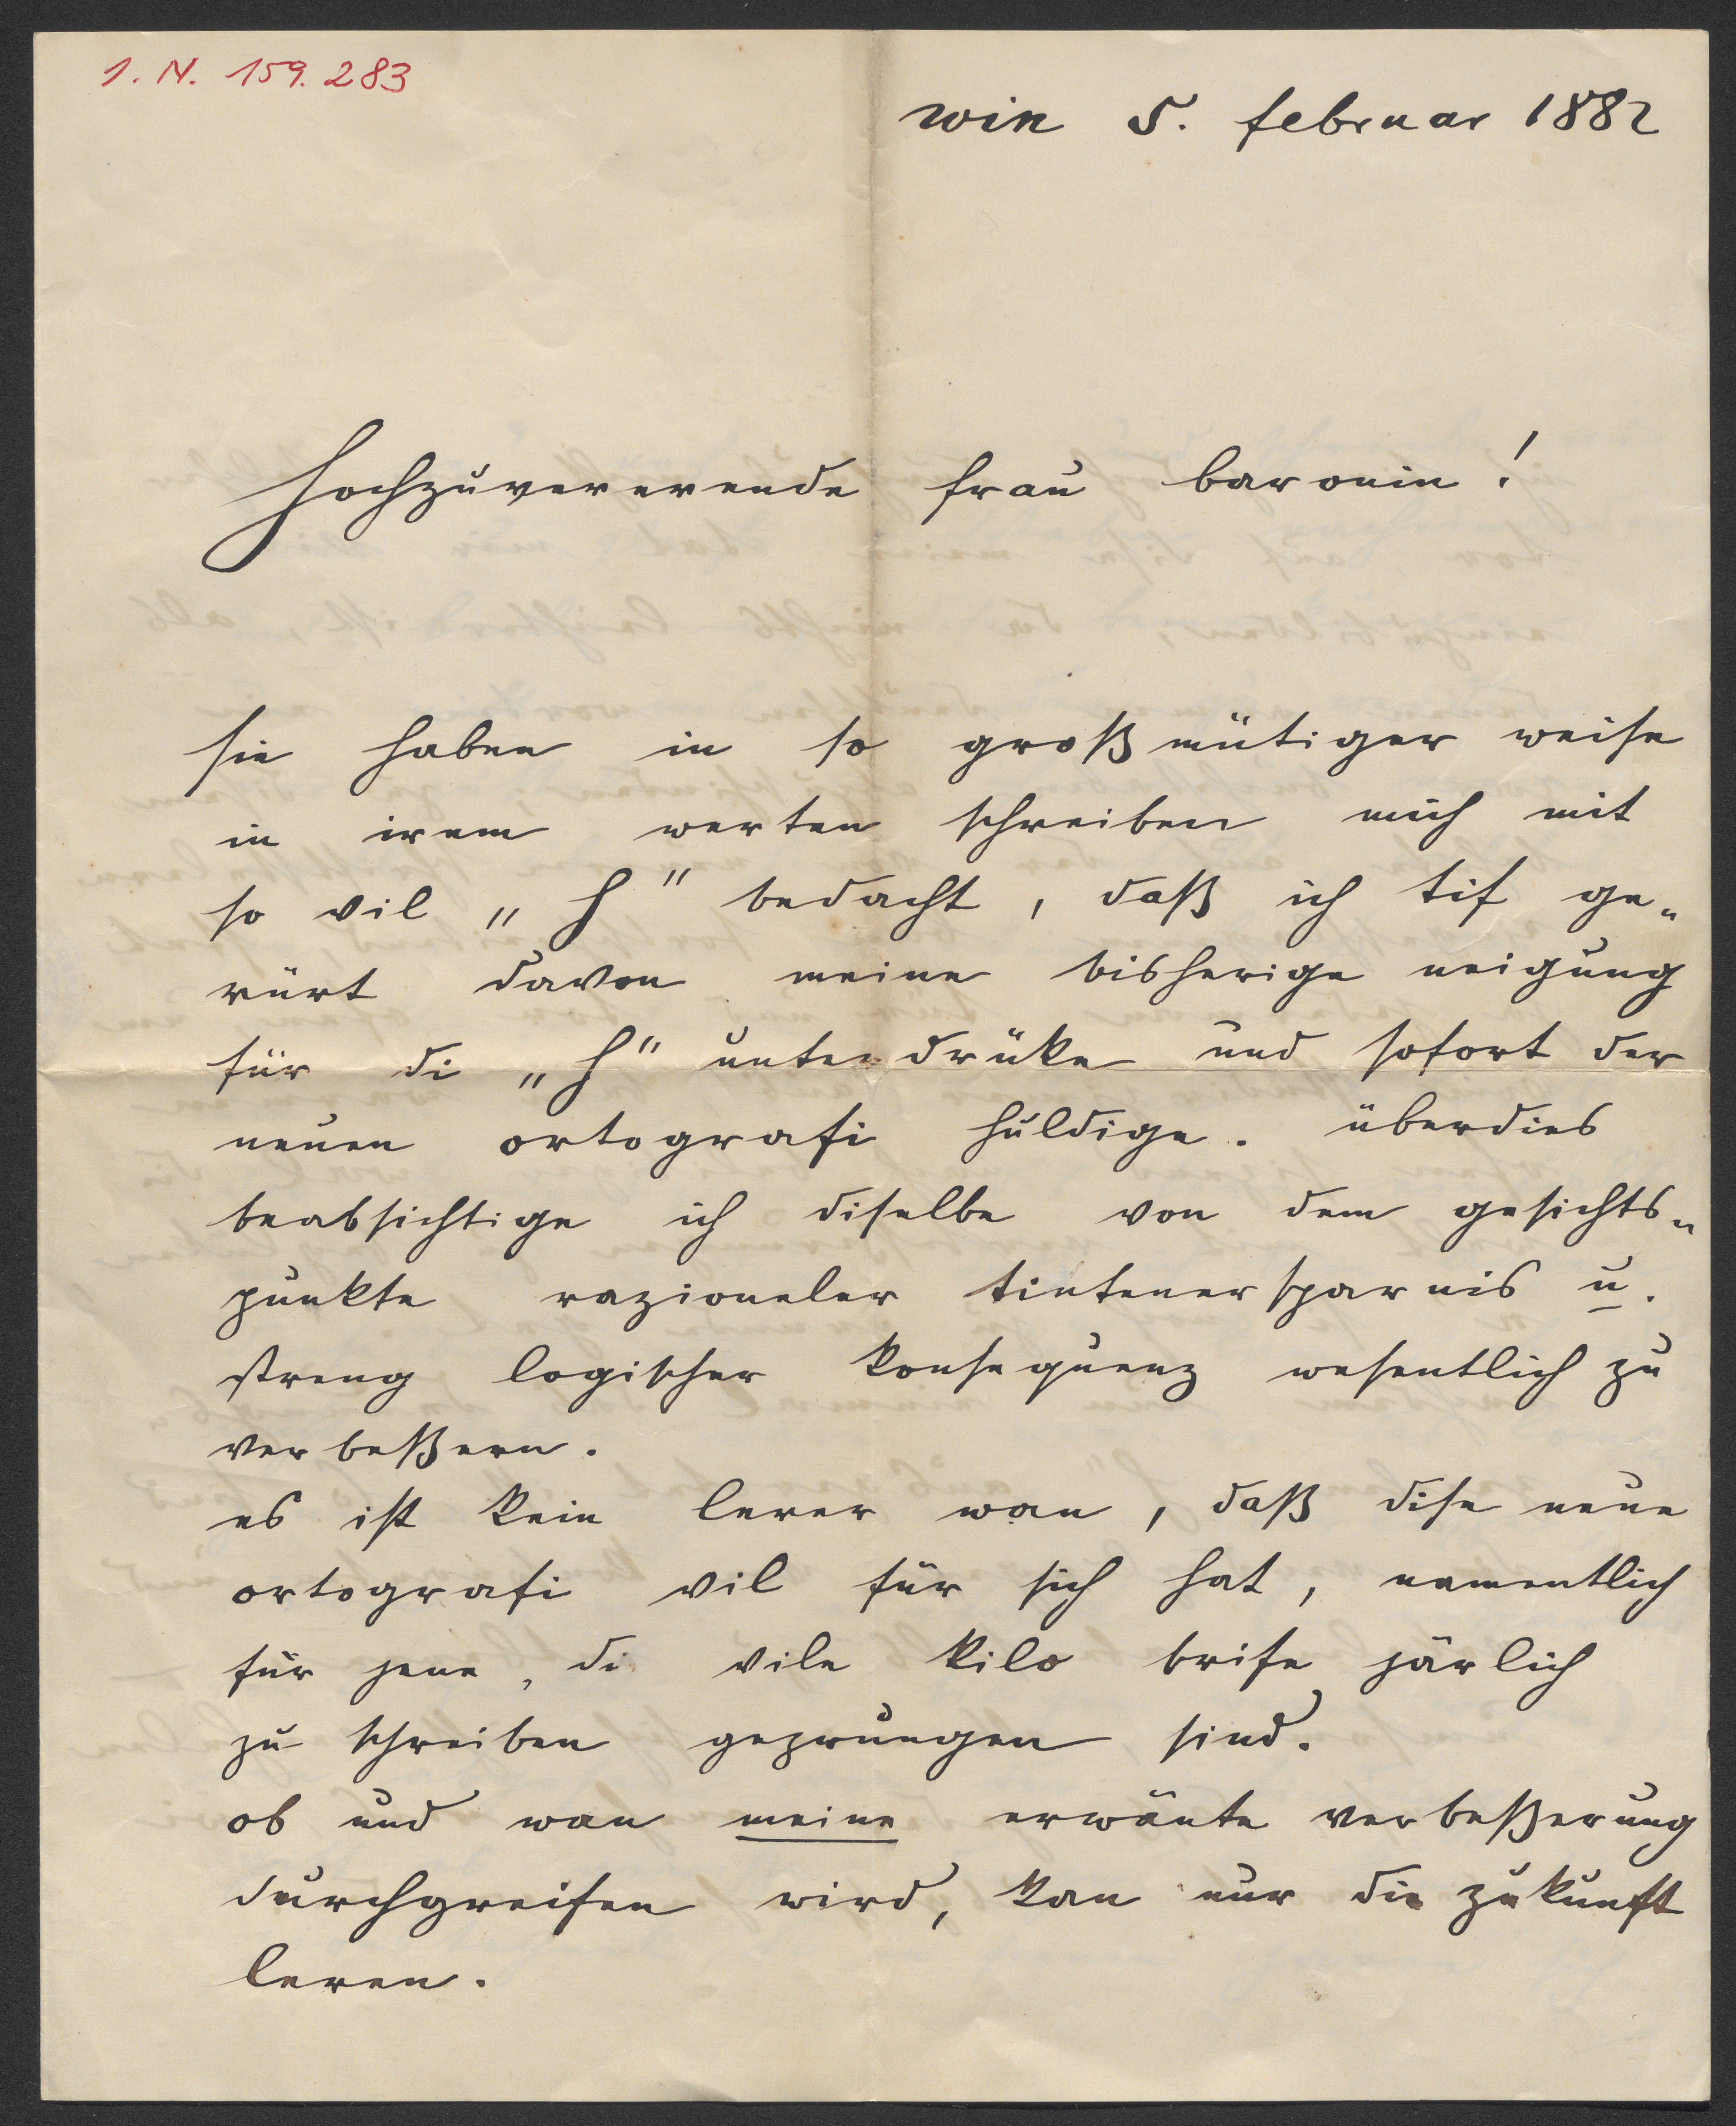 I. N. 159.283
win 5. februar 1882
hochzuvererende frau baronin!
sie haben in so großmütiger weise
in irem werten schreiben mich mit
so vil „h" bedacht, daß ich tif ge„
rürt davon meine bisherige neigung
für di „h" unterdrüke und sofort der
neuen ortografi huldige. überdies
beabsichtige ich diselbe von dem gesichts„
punkte razioneler tintenersparnis u.
streng logischer konsequenz wesentlich zu
verbeßern.
es ist kein lerer wan, daß dise neue
ortografi vil für sich hat, namentlich
für jene, di vile kilo brife järlich
zu schreiben gezwungen sind.
ob und wan meine erwänte verbeßerung
durchgreifen wird, kan nur die zukunft
leren.